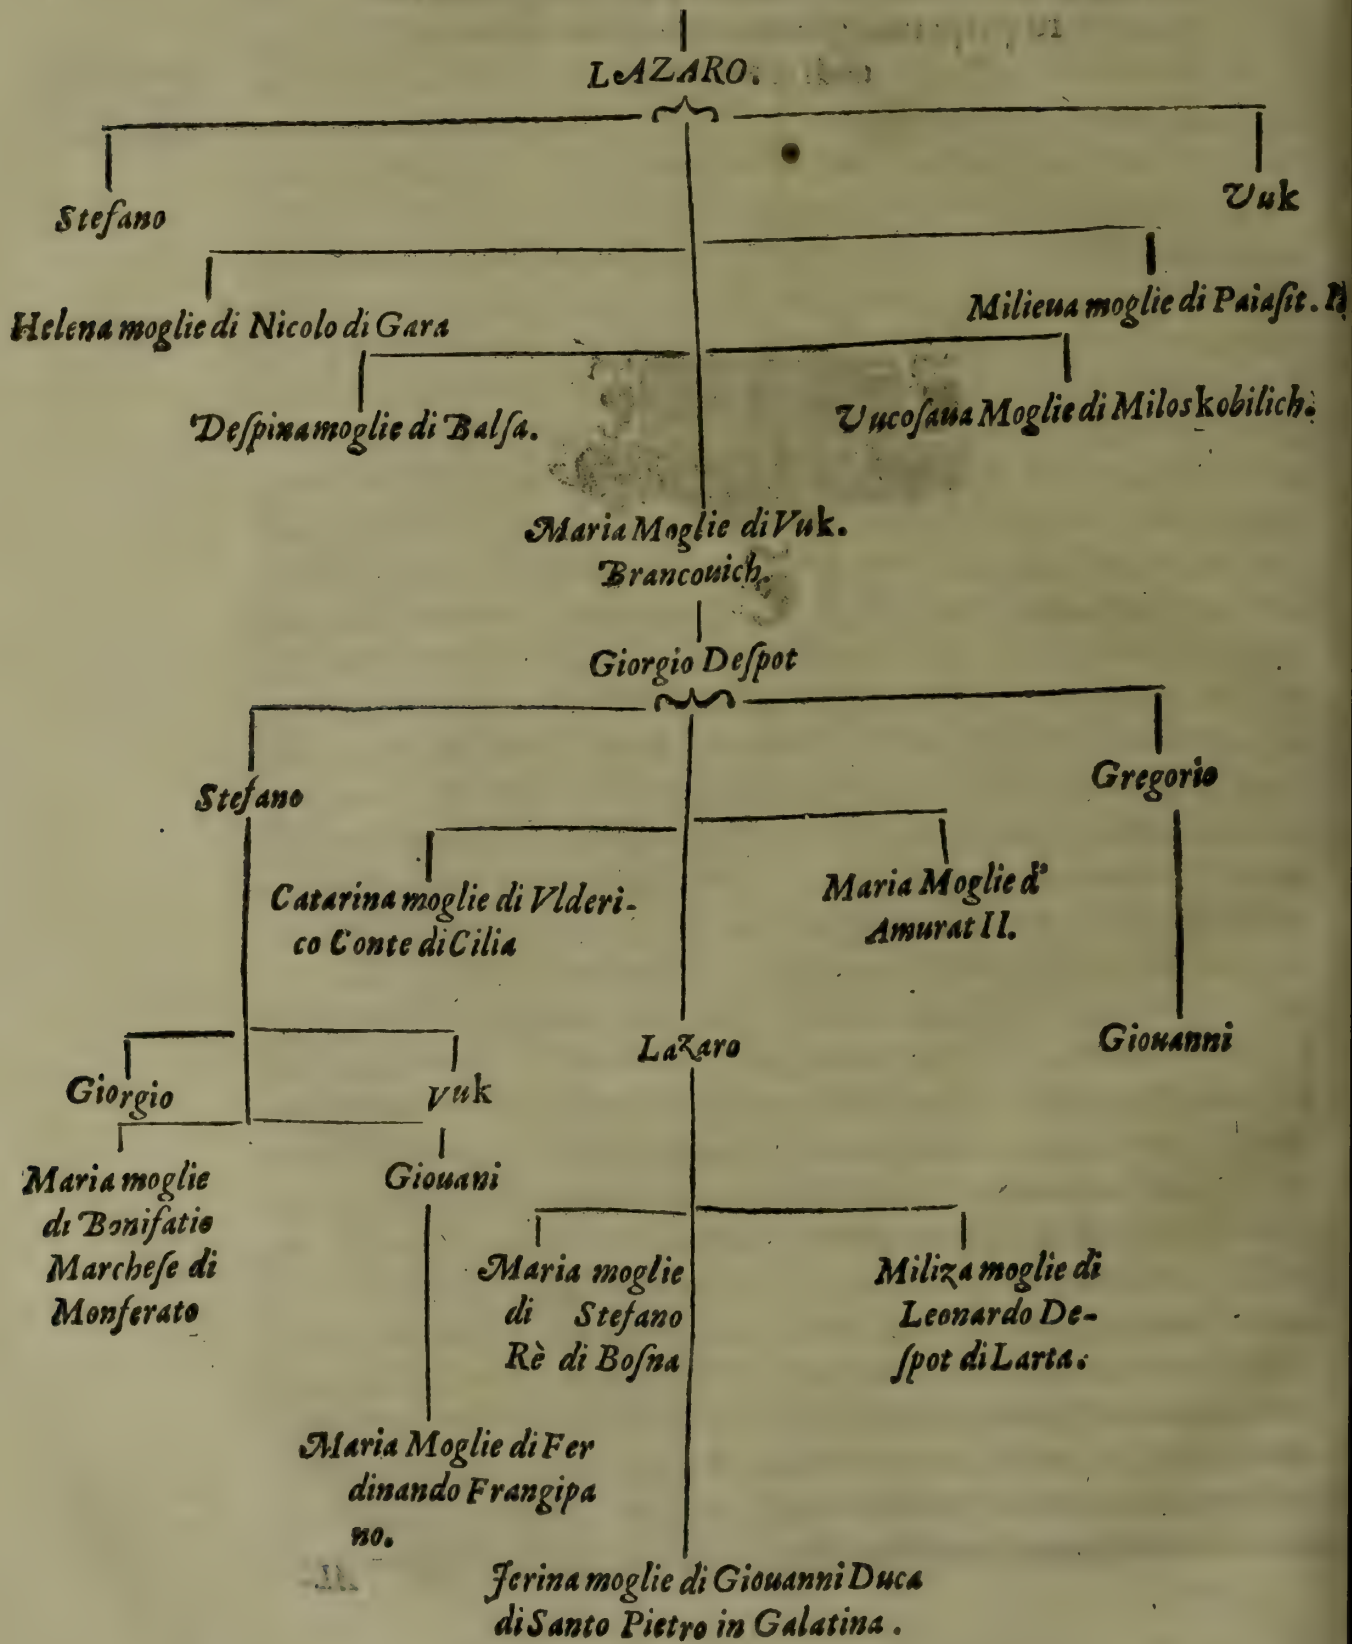 LAZARO.
Stefano
Vuk
Helena moglie di Nicolo di Gara
Milieua moglie di Paiaſit.
Deſpina moglie di Balſa.
Vucoſaua Moglie di Milos kobilich.
Maria Moglie di Vuk.
Brancouich.
Giorgio Deſpot
Stefano
Gregorio
Catarina moglie di Vlderi-
co Conte di Cilia
Maria Moglie d'
Amurat II.
Lazaro
Giouanni
Giorgio
Vuk
Maria moglie
di Bonifatio
Marcheſe di
Monferato
Giouani
Maria moglie
di Stefano
Rè di Boſna
Miliza moglie di
Leonardo De-
ſpot di Larta.
Maria Moglie di Fer
dinando Frangipa
no.
Jerina moglie di Giouanni Duca
di Santo Pietro in Galatina.